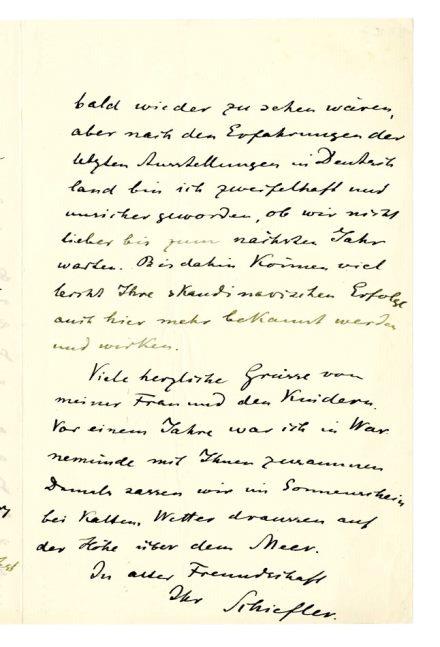 bald wieder zu sehen wären,
aber nach den Erfahrungen der
letzten Ausstellungen in Deutsch
land bin ich zweifelhaft und
unsicher geworden, ob wir nicht
lieber bis zum nächsten Jahr
warten. Bis dahin können viel
leicht Ihre skandinavischen Erfolge
auch hier mehr bekannt werden
und wirken.
Viele herzliche Grüsse von
meiner Frau und den Kindern.
Vor einem Jahre war ich in War
nemünde mit Ihnen zusammen
Damals sassen wir im Sonnenschein
bei kaltem Wetter draussen auf
der Höhe über dem Meer.
In alter Freundschaft
Ihr Schiefler.